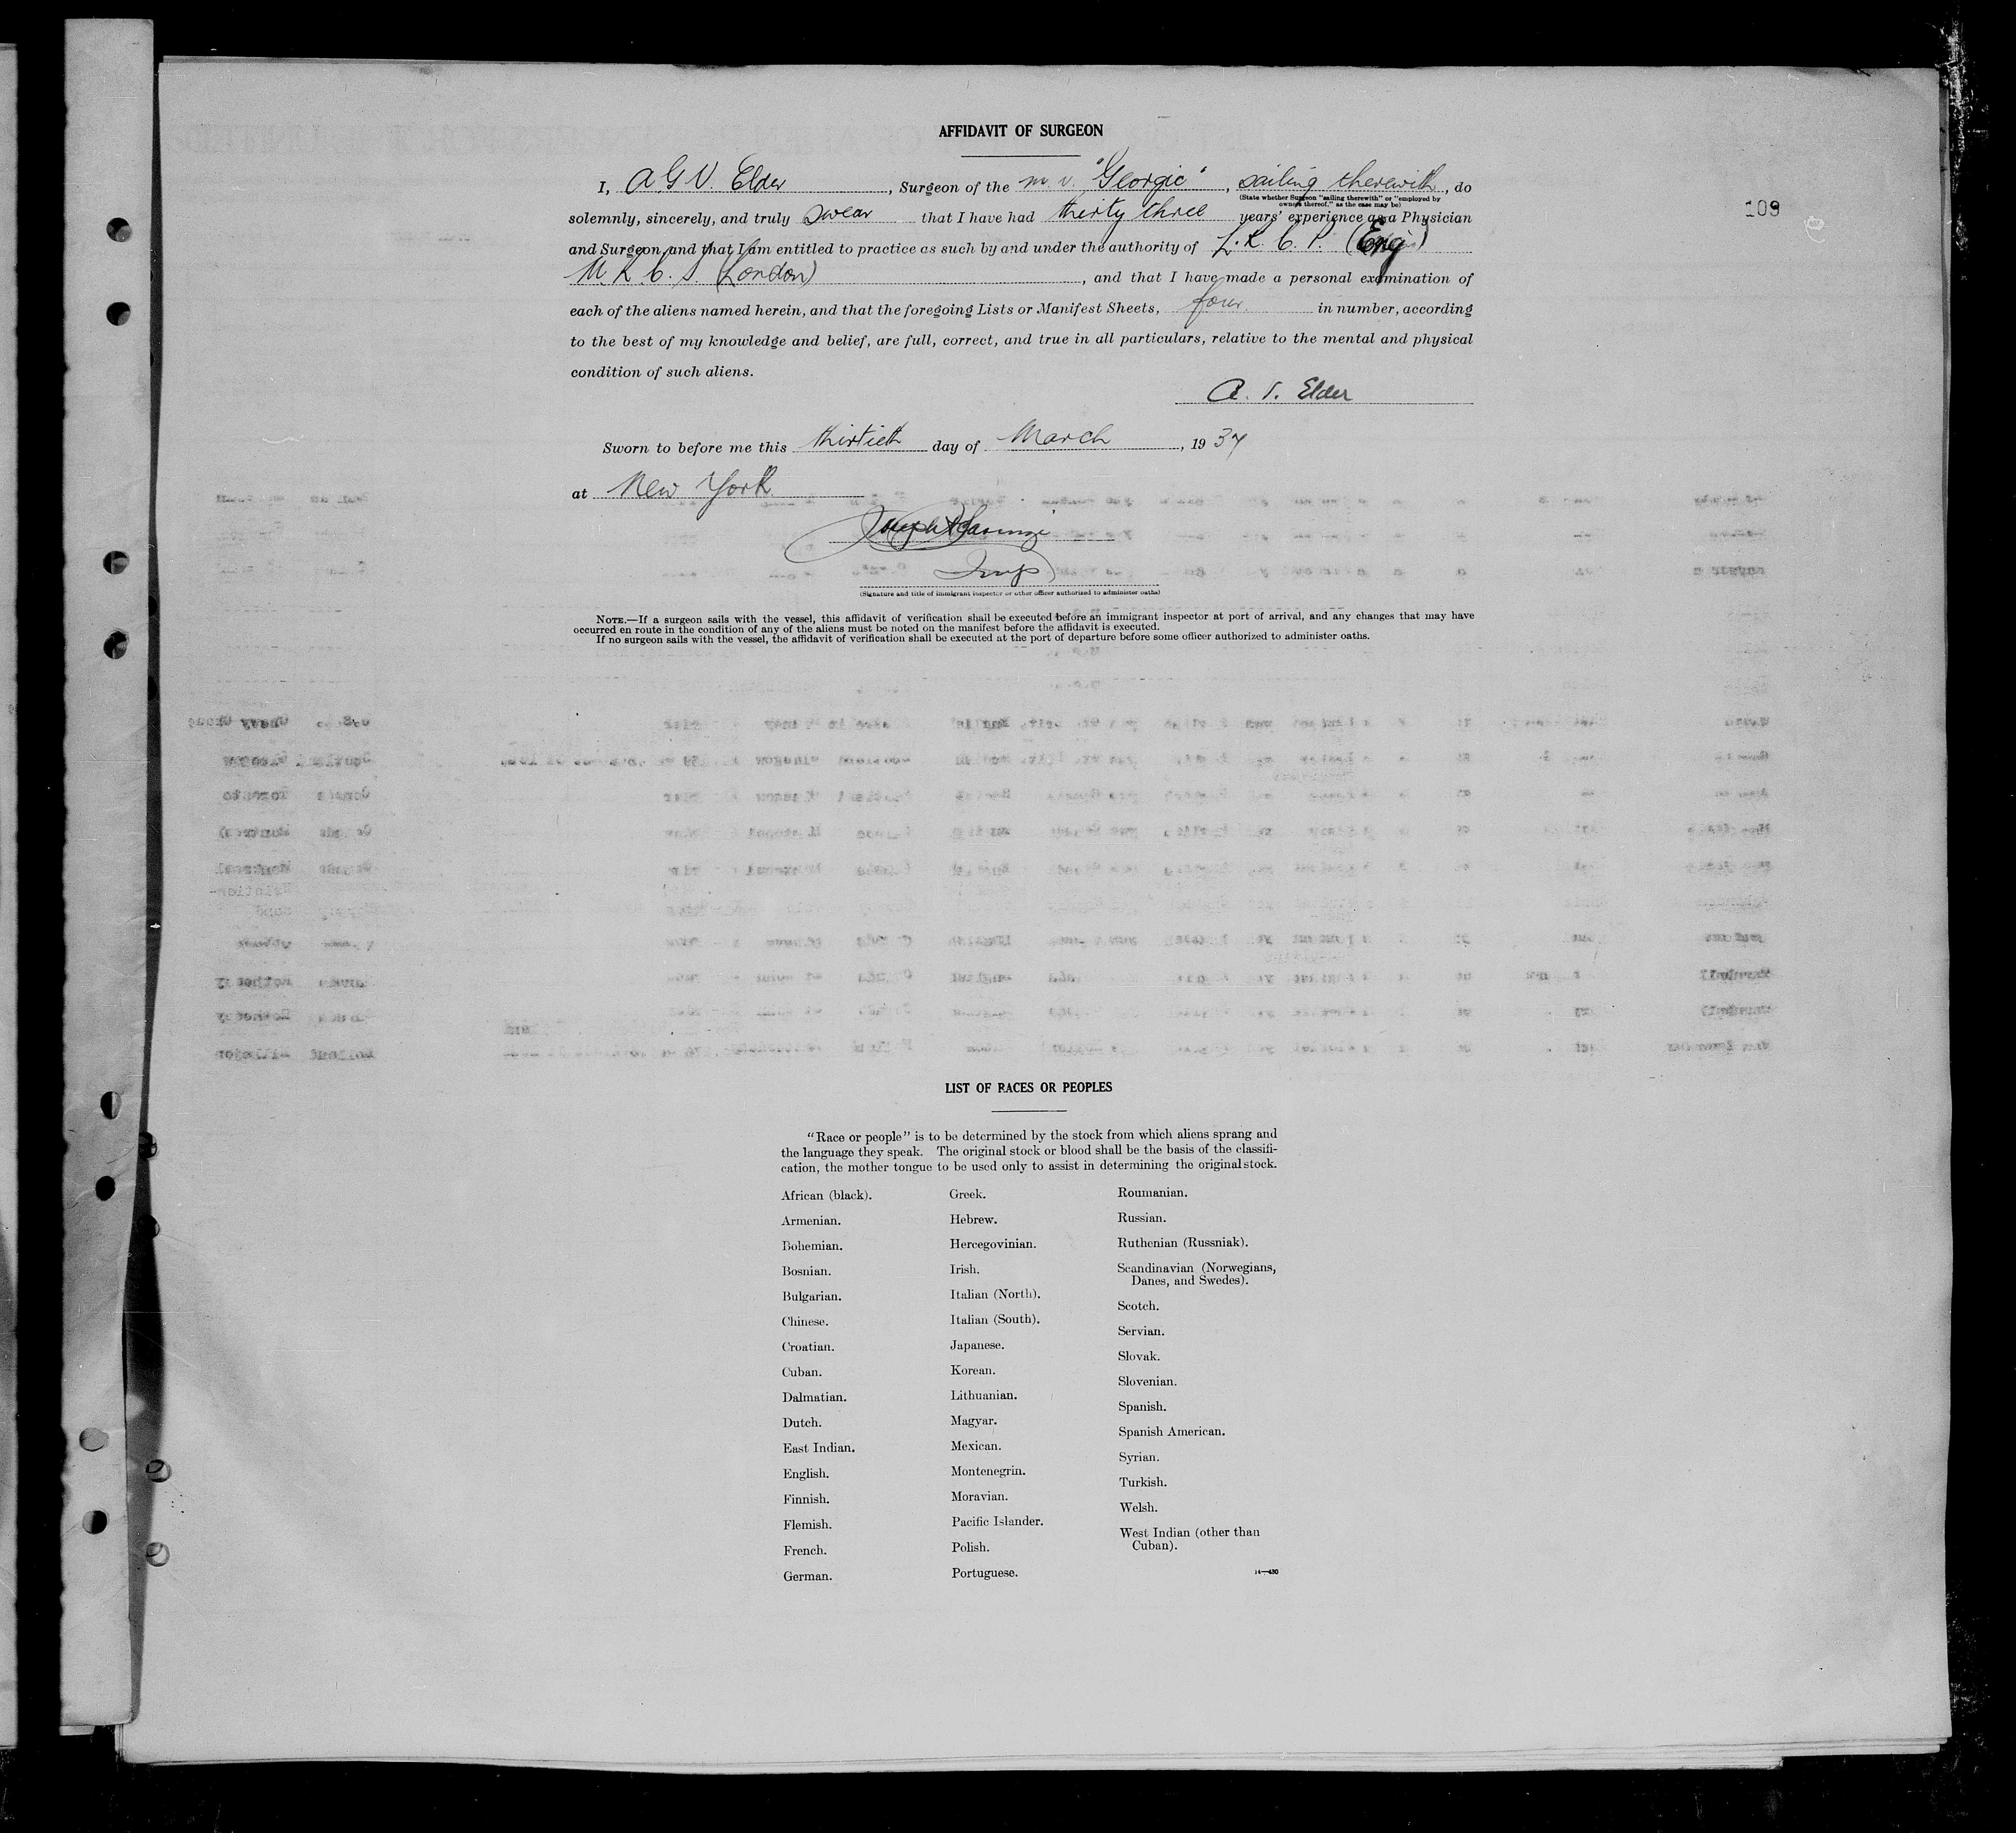 AFFIDAVIT OF SURGEON
109
I, A G V. Elder, Surgeon of the m. v. "Georgic", sailing therewith, do
(State whether Surgeon "sailing therewith" or "employed by
owners thereof," as the case may be)
solemnly, sincerely, and truly swear that I have had thirty three years' experience as a Physician
and Surgeon, and that I am entitled to practice as such by and under the authority of L. R. C. P. (Eng)
M. R. C. S. (London), and that I have made a personal examination of
each of the aliens named herein, and that the foregoing Lists or Manifest Sheets, four in number, according
to the best of my knowledge and belief, are full, correct, and true in all particulars, relative to the mental and physical
condition of such aliens.
A. V. Elder
Sworn to before me this thirtieth day of March, 1934
at New York
Insp
(Signature and title of immigrant inspector or other officer authorized to administer oaths)
NOTE.—If a surgeon sails with the vessel, this affidavit of verification shall be executed before an immigrant inspector at port of arrival, and any changes that may have
occurred en route in the condition of any of the aliens must be noted on the manifest before the affidavit is executed.
If no surgeon sails with the vessel, the affidavit of verification shall be executed at the port of departure before some officer authorized to administer oaths.
LIST OF RACES OR PEOPLES
"Race or people" is to be determined by the stock from which aliens sprang and
the language they speak. The original stock or blood shall be the basis of the classifi-
cation, the mother tongue to be used only to assist in determining the original stock.
African (black).
Armenian.
Bohemian.
Bosnian.
Bulgarian.
Chinese.
Croatian.
Cuban.
Dalmatian.
Dutch.
East Indian.
English.
Finnish.
Flemish.
French.
German.
Greek.
Hebrew.
Hercegovinian.
Irish.
Italian (North).
Italian (South).
Japanese.
Korean.
Lithuanian.
Magyar.
Mexican.
Montenegrin.
Moravian.
Pacific Islander.
Polish.
Portuguese.
Roumanian.
Russian.
Ruthenian (Russniak).
Scandinavian (Norwegians,
Danes, and Swedes).
Scotch.
Servian.
Slovak.
Slovenian.
Spanish.
Spanish American.
Syrian.
Turkish.
Welsh.
West Indian (other than
Cuban).
14—430